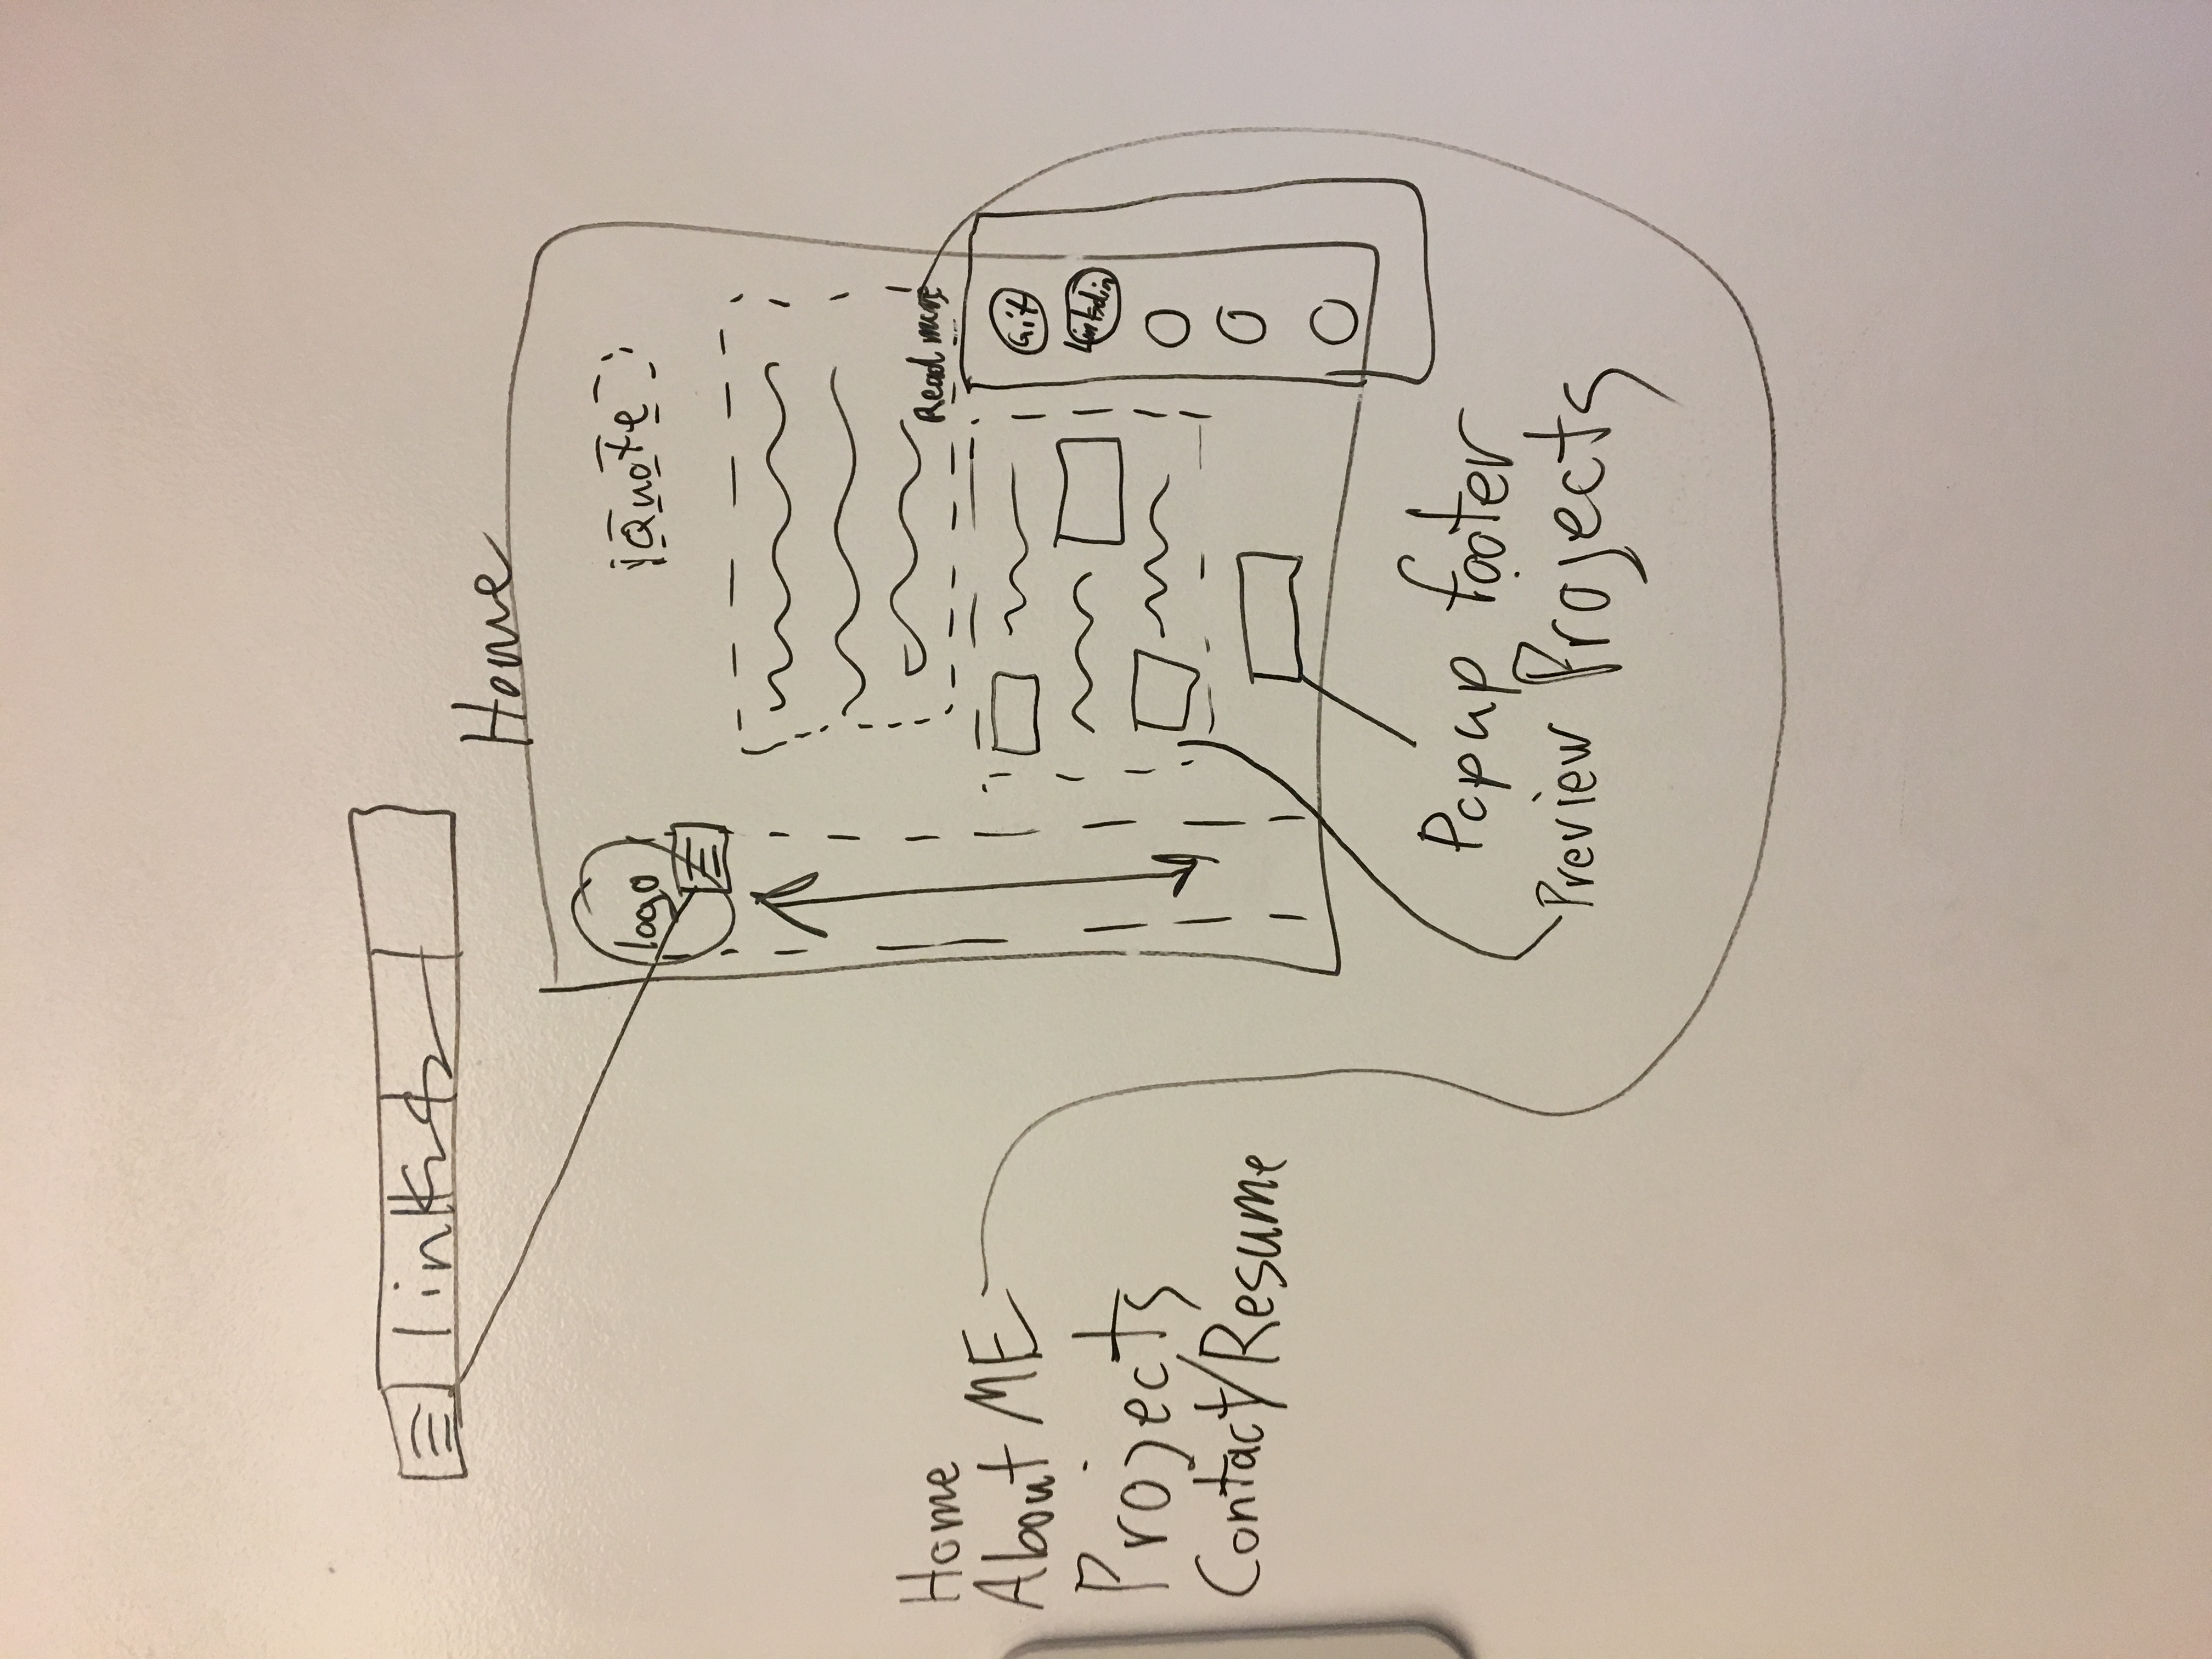 links
Home
logo
Quote
Read more
Git
Linkedin
Home
About ME
Projects
Contact/Resume
Popup footer
Preview Projects